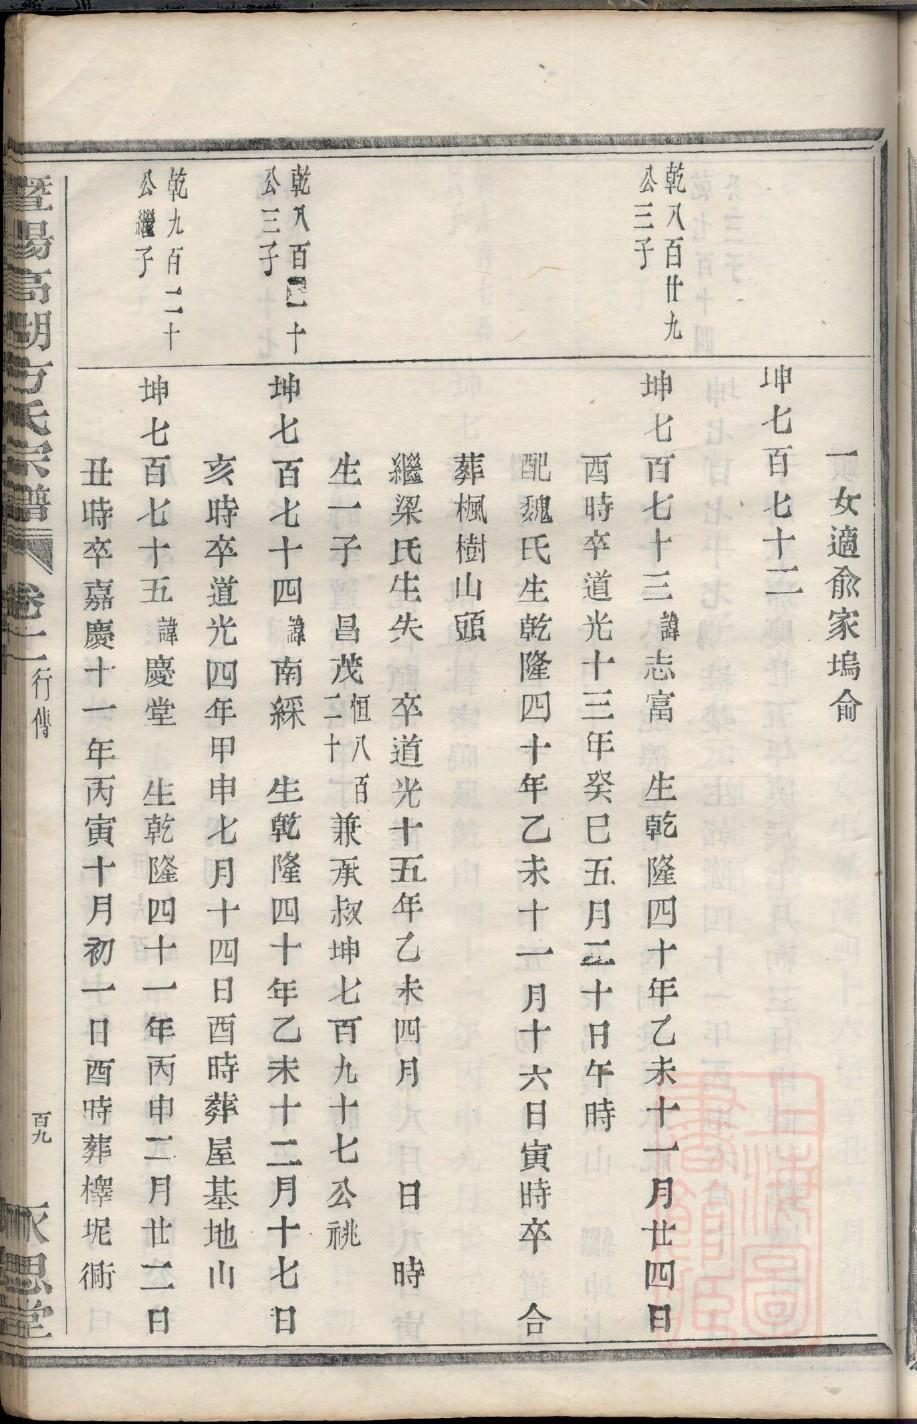 一女適兪家塢俞
坤七百七十二
乾八百廿九
公三子
坤七百七十三諱志富 生乾隆四十年乙未十一月廿四日
酉時卒道光十三年癸巳五月二十日午時
配魏氏生乾隆四十年乙未十一月十六日寅時卒 合
葬楓樹山頭
繼梁氏生失 卒道光十五年乙未四月 日 時
生一子 昌茂恒八百二十兼承叔坤七百九十七公祧
乾八百二十
公三子
坤七百七十四諱南綵 生乾隆四十年乙未十二月十七日
亥時卒道光四年甲申七月十四日酉時葬屋基地山
乾九百二十
公繼子
坤七百七十五諱慶堂 生乾隆四十一年丙申二月廿二日
丑時卒嘉慶十一年丙寅十月初一日酉時葬檡坭衕
暨陽高湖方氏宗譜 卷 行傳 百九 永思堂